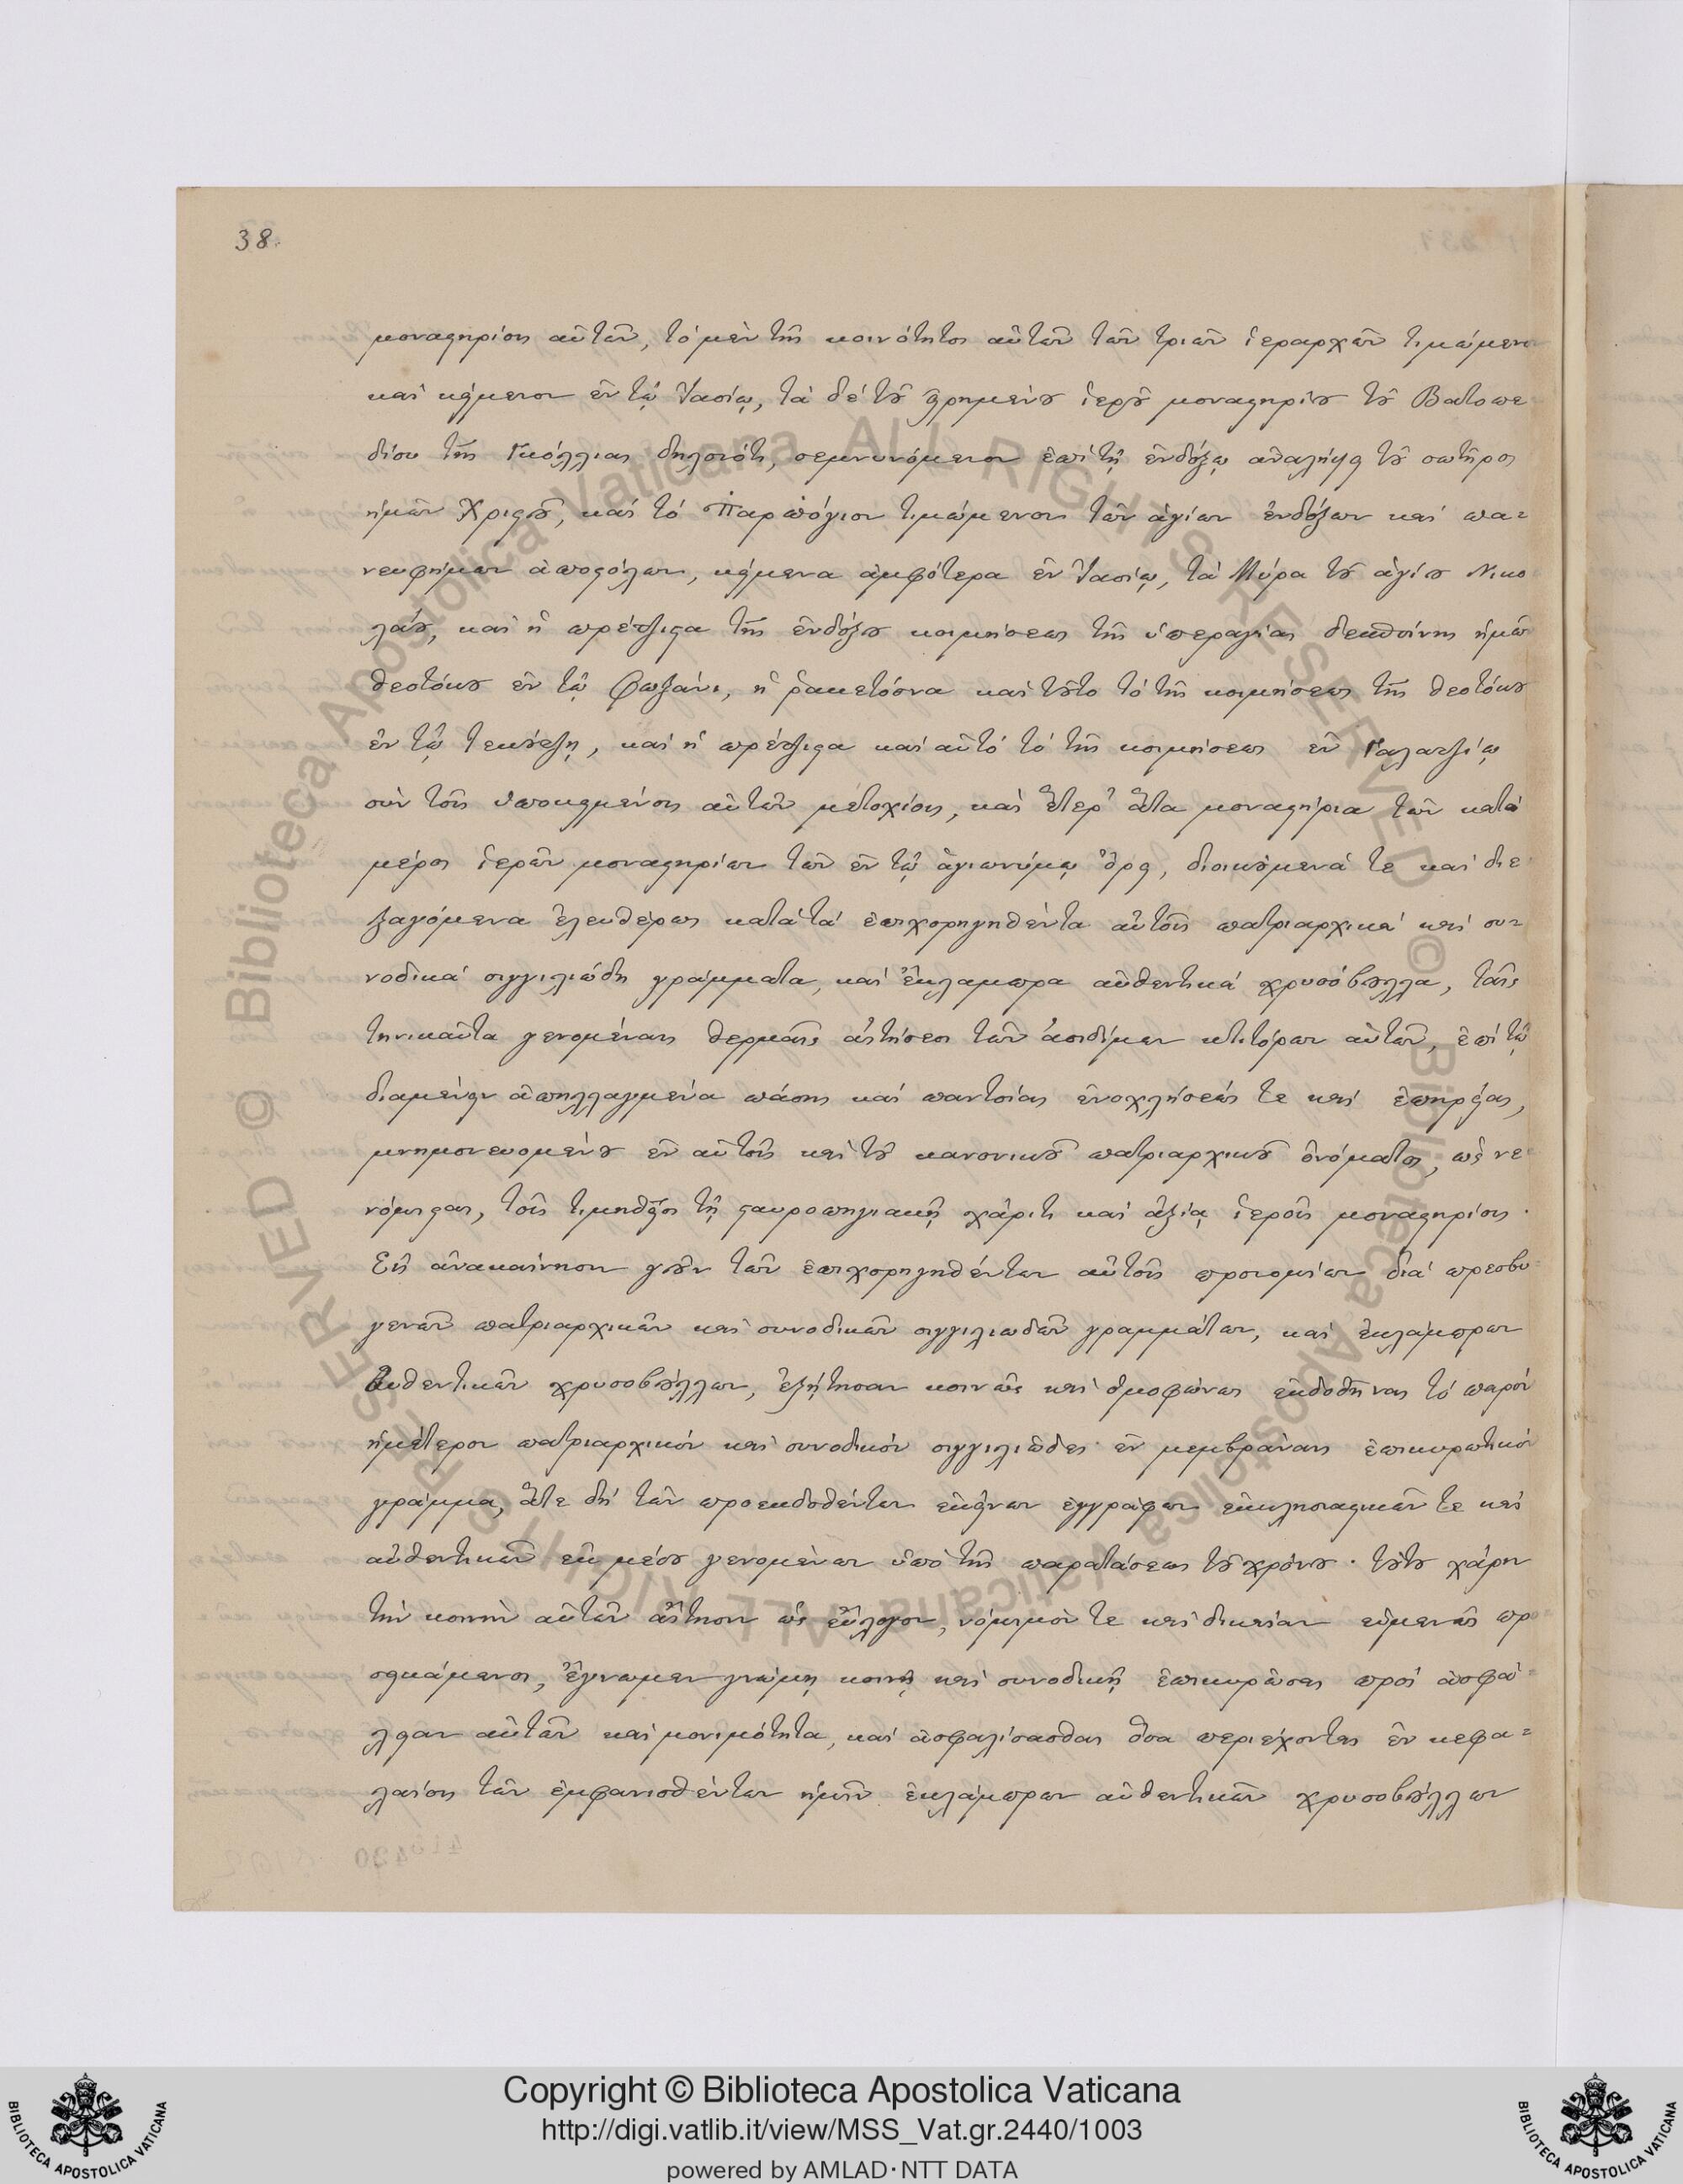 38.
μοναστηρίοις αὐτῶν, τὸ μὲν τῆς κοινότητος αὐτῶν τῶν τριῶν ἱεραρχῶν τιμώμενον
καὶ κείμενον ἐν τῷ Ἰασίῳ, τὰ δὲ τοῦ εἰρημένου ἱεροῦ μοναστηρίου τοῦ Βατοπε
δίου τῆς Γκόλλιας δηλονότι, σεμνυνόμενον ἐπὶ τῇ ἐνδόξῳ ἀναλήψει τοῦ σωτῆρος
ἡμῶν Χριστοῦ, καὶ τὸ τιμώμενον τῶν ἁγίων ἐνδόξων καὶ πα=
νευφήμων ἀποστόλων, κείμενα ἀμφότερα ἐν Ἰασίῳ, τὰ Μύρα τοῦ ἁγίου Νικο
λάου, καὶ ἡ πρέτζιστα τῆς ἐνδόξου κοιμήσεως τῆς ὑπεραγίας δεσποίνης ἡμῶν
θεοτόκου ἐν τῷ Φωξάνι, ἡ ῥακετόσνα καὶ τοῦτο τὸ τῆς κοιμήσεως τῆς θεοτόκου
ἐν τῷ καὶ ἡ πρέτζιστα καὶ αὐτὸ τὸ τῆς κοιμήσεως ἐν Γαλατζίῳ
σὺν τοῖς ὑποκειμένοις αὐτῶν μετοχίοις, καὶ ἕτερ' ἄττα μοναστήρια τῶν κατὰ
μέρος ἱερῶν μοναστηρίων τῶν ἐν τῷ ἁγιωνύμῳ ὄρει, διοικούμενά τε καὶ διε
ξαγόμενα ἐλευθέρως κατὰ τὰ ἐπιχορηγηθέντα αὐτοῖς πατριαρχικὰ καὶ συ=
νοδικὰ σιγγιλιώδη γράμματα, καὶ ἔκλαμπρα αὐθεντικὰ χρυσόβουλλα, ταῖς
τηνικαῦτα γενομέναις θερμαῖς αἰτήσεσι τῶν ἀοιδίμων κτιτόρων αὐτῶν, ἐπὶ τῷ
διαμένειν ἀπηλλαγμένα πάσης καὶ παντοίας ἐνοχλήσεώς τε καὶ ἐπηρείας,
μνημονευομένου ἐν αὐτοῖς καὶ τοῦ κανονικοῦ πατριαρχικοῦ ὀνόματος, ὡς νε
νόμισται, τοῖς τιμηθεῖσι τῇ σταυροπηγιακῇ χάριτι καὶ ἀξίᾳ ἱεροῖς μοναστηρίοις.
Εἰς ἀνακαίνησιν γοῦν τῶν ἐπιχορηγηθέντων αὐτοῖς προνομίων διὰ πρεσβυ
γενῶν πατριαρχικῶν καὶ συνοδικῶν σιγγιλιωδῶν γραμμάτων, καὶ ἐκλάμπρων
αὐθεντικῶν χρυσοβούλλων, ἐξῄτησαν κοινῶς καὶ ὁμοφώνως ἐκδοθῆναι τὸ παρὸν
ἡμέτερον πατριαρχικὸν καὶ συνοδικὸν σιγγιλιῶδες ἐν μεμβράναις ἐπικυρωτικὸν
γράμμα, ἅτε δὴ τῶν προεκδοθέντων ἐκείνων ἐγγράφων ἐκκλησιαστικῶν τε καὶ
αὐθεντικῶν ἐκ μέσου γενομένων ὑπὸ τῆς παρατάσεως τοῦ χρόνου· τούτου χάριν
τὴν κοινὴν αὐτῶν αἴτησιν ὡς εὔλογον, νόμιμόν τε καὶ δικαίαν εὐμενῶς προ
σηκάμενοι, ἔγνωμεν γνώμῃ κοινῇ καὶ συνοδικῇ ἐπικυρῶσαι πρὸς ἀσφά=
λειαν αὐτῶν καὶ μονιμότητα, καὶ ἀσφαλίσασθαι ὅσα περιέχονται ἐν κεφα=
λαίοις τῶν ἐμφανισθέντων ἡμῖν ἐκλάμπρων αὐθεντικῶν χρυσοβούλλων
© Biblioteca Apostolica Vaticana ALL RIGHTS RESERVED © Biblioteca Apostolica Vaticana ALL RIGHTS RESERVED
BIBLIOTECA APOSTOLICA VATICANA
Copyright © Biblioteca Apostolica Vaticana
http://digi.vatlib.it/view/MSS_Vat.gr.2440/1003
powered by AMLAD·NTT DATA
BIBLIOTECA APOSTOLICA VATICANA